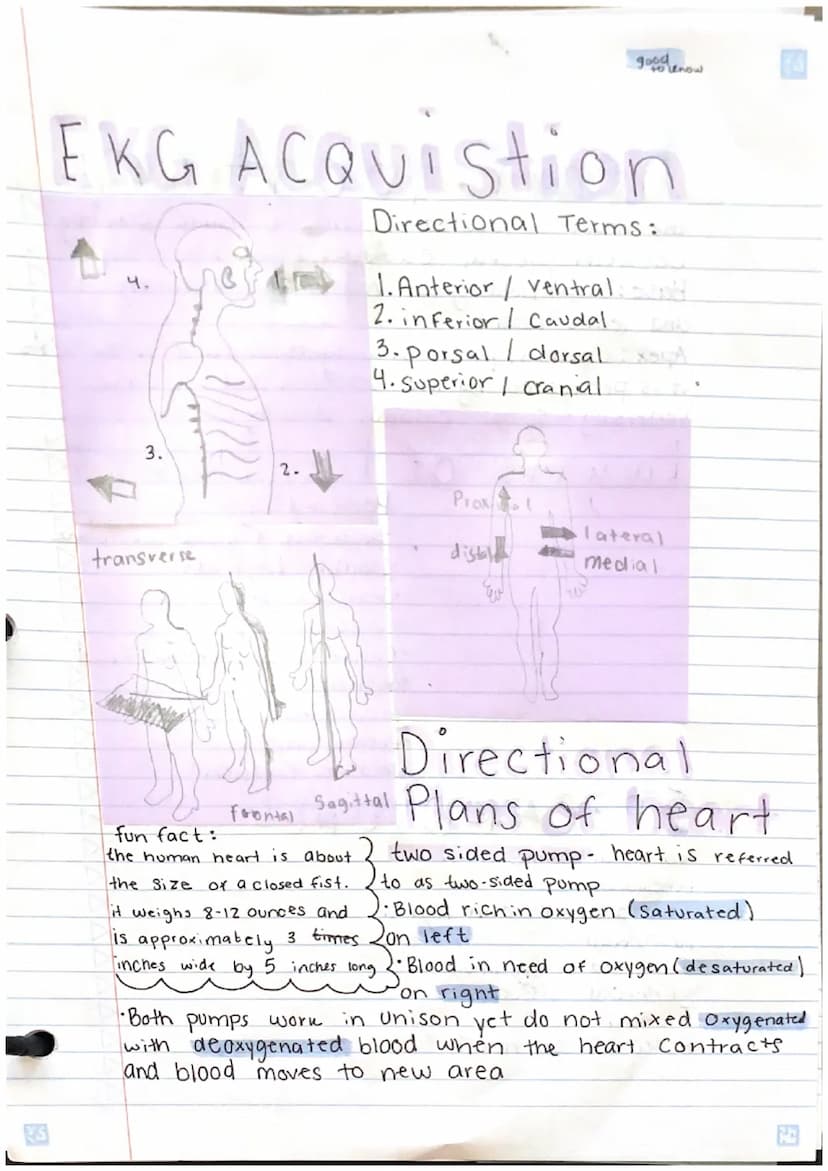 good
to know
EKG ACQUIStion
Directional Terms:
1. Anterior / ventral
2. inferior / caudal
3. porsal / dorsal
4. superior / cranial
4.
1.
3.
2.
Proximal
distal
lateral
medial
transverse
frontal
Sagittal
Directional
Plans of heart
fun fact:
the human heart is about
the size of a closed fist.
it weighs 8-12 ounces and
is approximately 3 times
inches wide by 5 inches long
two sided pump- heart is referred
to as two-sided pump
·Blood rich in oxygen (saturated)
on left
·Blood in need of oxygen (desaturated)
on right
·Both pumps work in unison yet do not mixed oxygenated
with deoxygenated blood when the heart contracts
and blood moves to new area